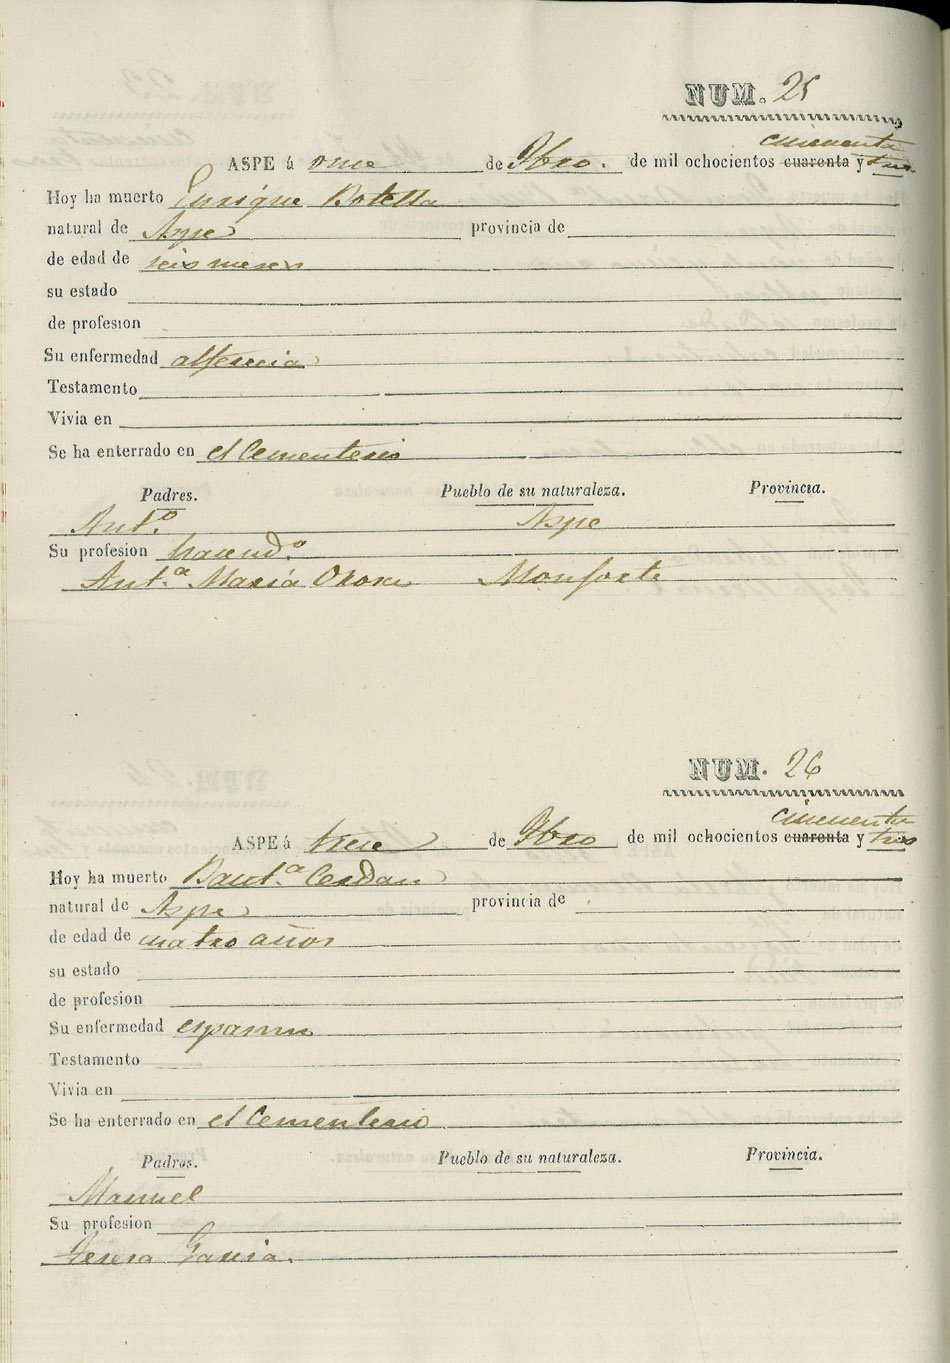 NUM. 25
cincuenta
ASPE á once de 9bro. de mil ochocientos cuarenta y tres.
Hoy ha muerto Enrique Botella
natural de Aspe provincia de
de edad de seis meses
su estado
de profesion
Su enfermedad alferecia
Testamento
Vivia en
Se ha enterrado en el Cementerio
Padres. Pueblo de su naturaleza. Provincia.
Ant.º Aspe
Su profesion hacend.º
Ant.ª Maria Monforte
NUM. 26
cincuenta
ASPE á trece de 9bro de mil ochocientos cuarenta y tres
Hoy ha muerto Baut.ª Cerdan
natural de Aspe provincia de
de edad de cuatro años
su estado
de profesion
Su enfermedad espasmo
Testamento
Vivia en
Se ha enterrado en el Cementerio
Padres. Pueblo de su naturaleza. Provincia.
Manuel
Su profesion
Teresa Garcia.